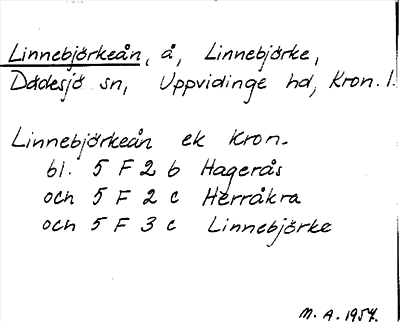 Linnebjörkeån, å, Linnebjörke,
Dädesjö sn, Uppvidinge hd, Kron. l.
Linnebjörkeån ek Kron.
bl. 5 F 2 b Hagerås
och 5 F 2 c Herråkra
och 5 F 3 c Linnebjörke
M. A. 1954.